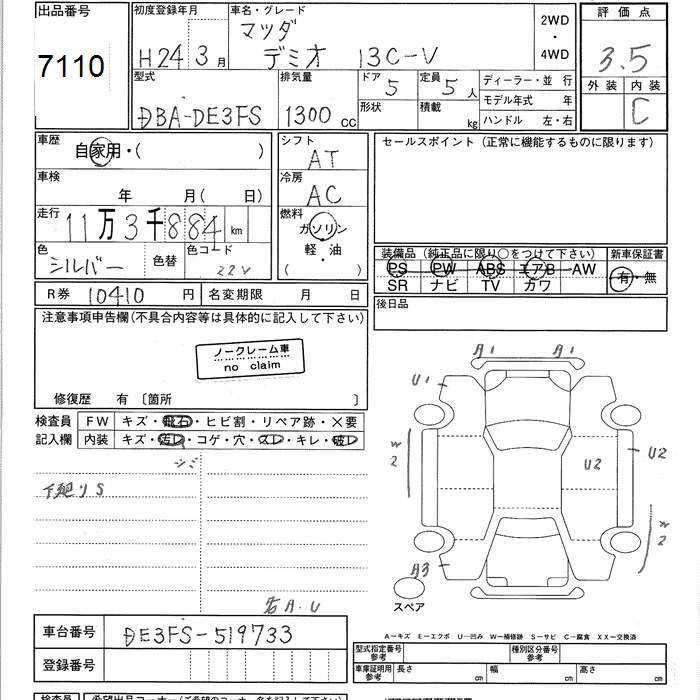 出品番号
7110
初度登録年月
H24 3月
車名・グレード
マツダ
デミオ 13C-V
2WD
・
4WD
評価点
3.5
外装 内装
C
型式
DBA-DE3FS
排気量
1300 cc
ドア
5
形状
定員
5人
積載
kg
ディーラー・並行
モデル年式 年
ハンドル 左・右
車歴
自家用・( )
車検
年 月( 日)
走行
11万3千884 km
色
シルバー
色替
色コード
22V
シフト
AT
冷房
AC
燃料
ガソリン
軽・油
( )
セールスポイント (正常に機能するものに限ります)
装備品 (純正品に限り○をつけて下さい)
PS PW ABS エアB AW
SR ナビ TV カワ
新車保証書
有・無
後日品
R券 10410 円
名変期限 月 日
注意事項申告欄(不具合内容等は具体的に記入して下さい)
ノークレーム車
no claim
修復歴 有 〔箇所 〕
検査員
記入欄
FW キズ・飛石・ヒビ割・リペア跡・×要
内装 キズ・汚レ・コゲ・穴・スレ・キレ・破レ
シミ
下廻りS
右A.U
A1 A1
U1
W2
U2
U2
W2
A3
スペア
A－キズ E－エクボ U－凹み W－補修跡 S－サビ C－腐食 XX－交換済
車台番号
DE3FS-519733
登録番号
型式指定番号
参考
種別区分番号
参考
車庫証明用
参考
長さ cm
幅 cm
高さ cm